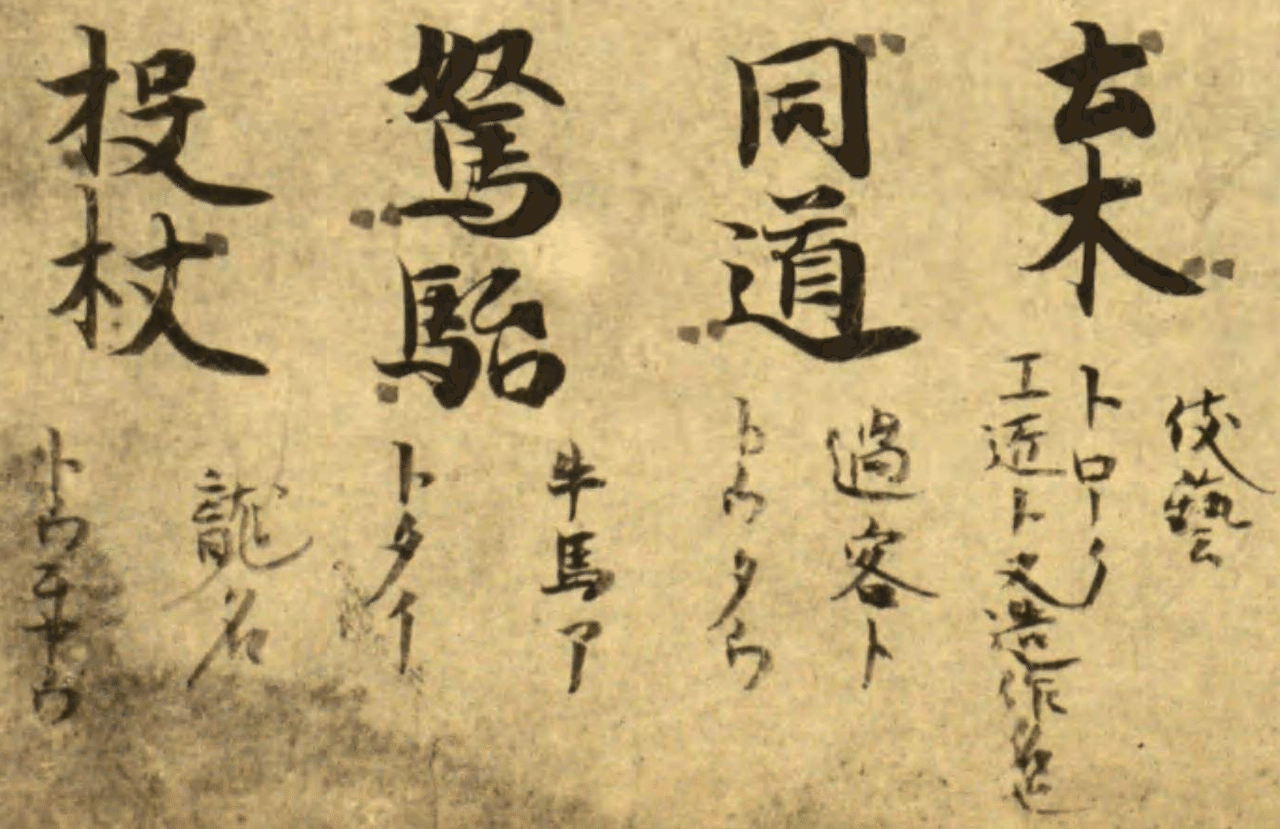 土木
伎藝
工匠ト又造作
同道
過客ト
トウタウ
駑駘
牛馬ア
トタイ
投杖
龍名
トウチヤウ